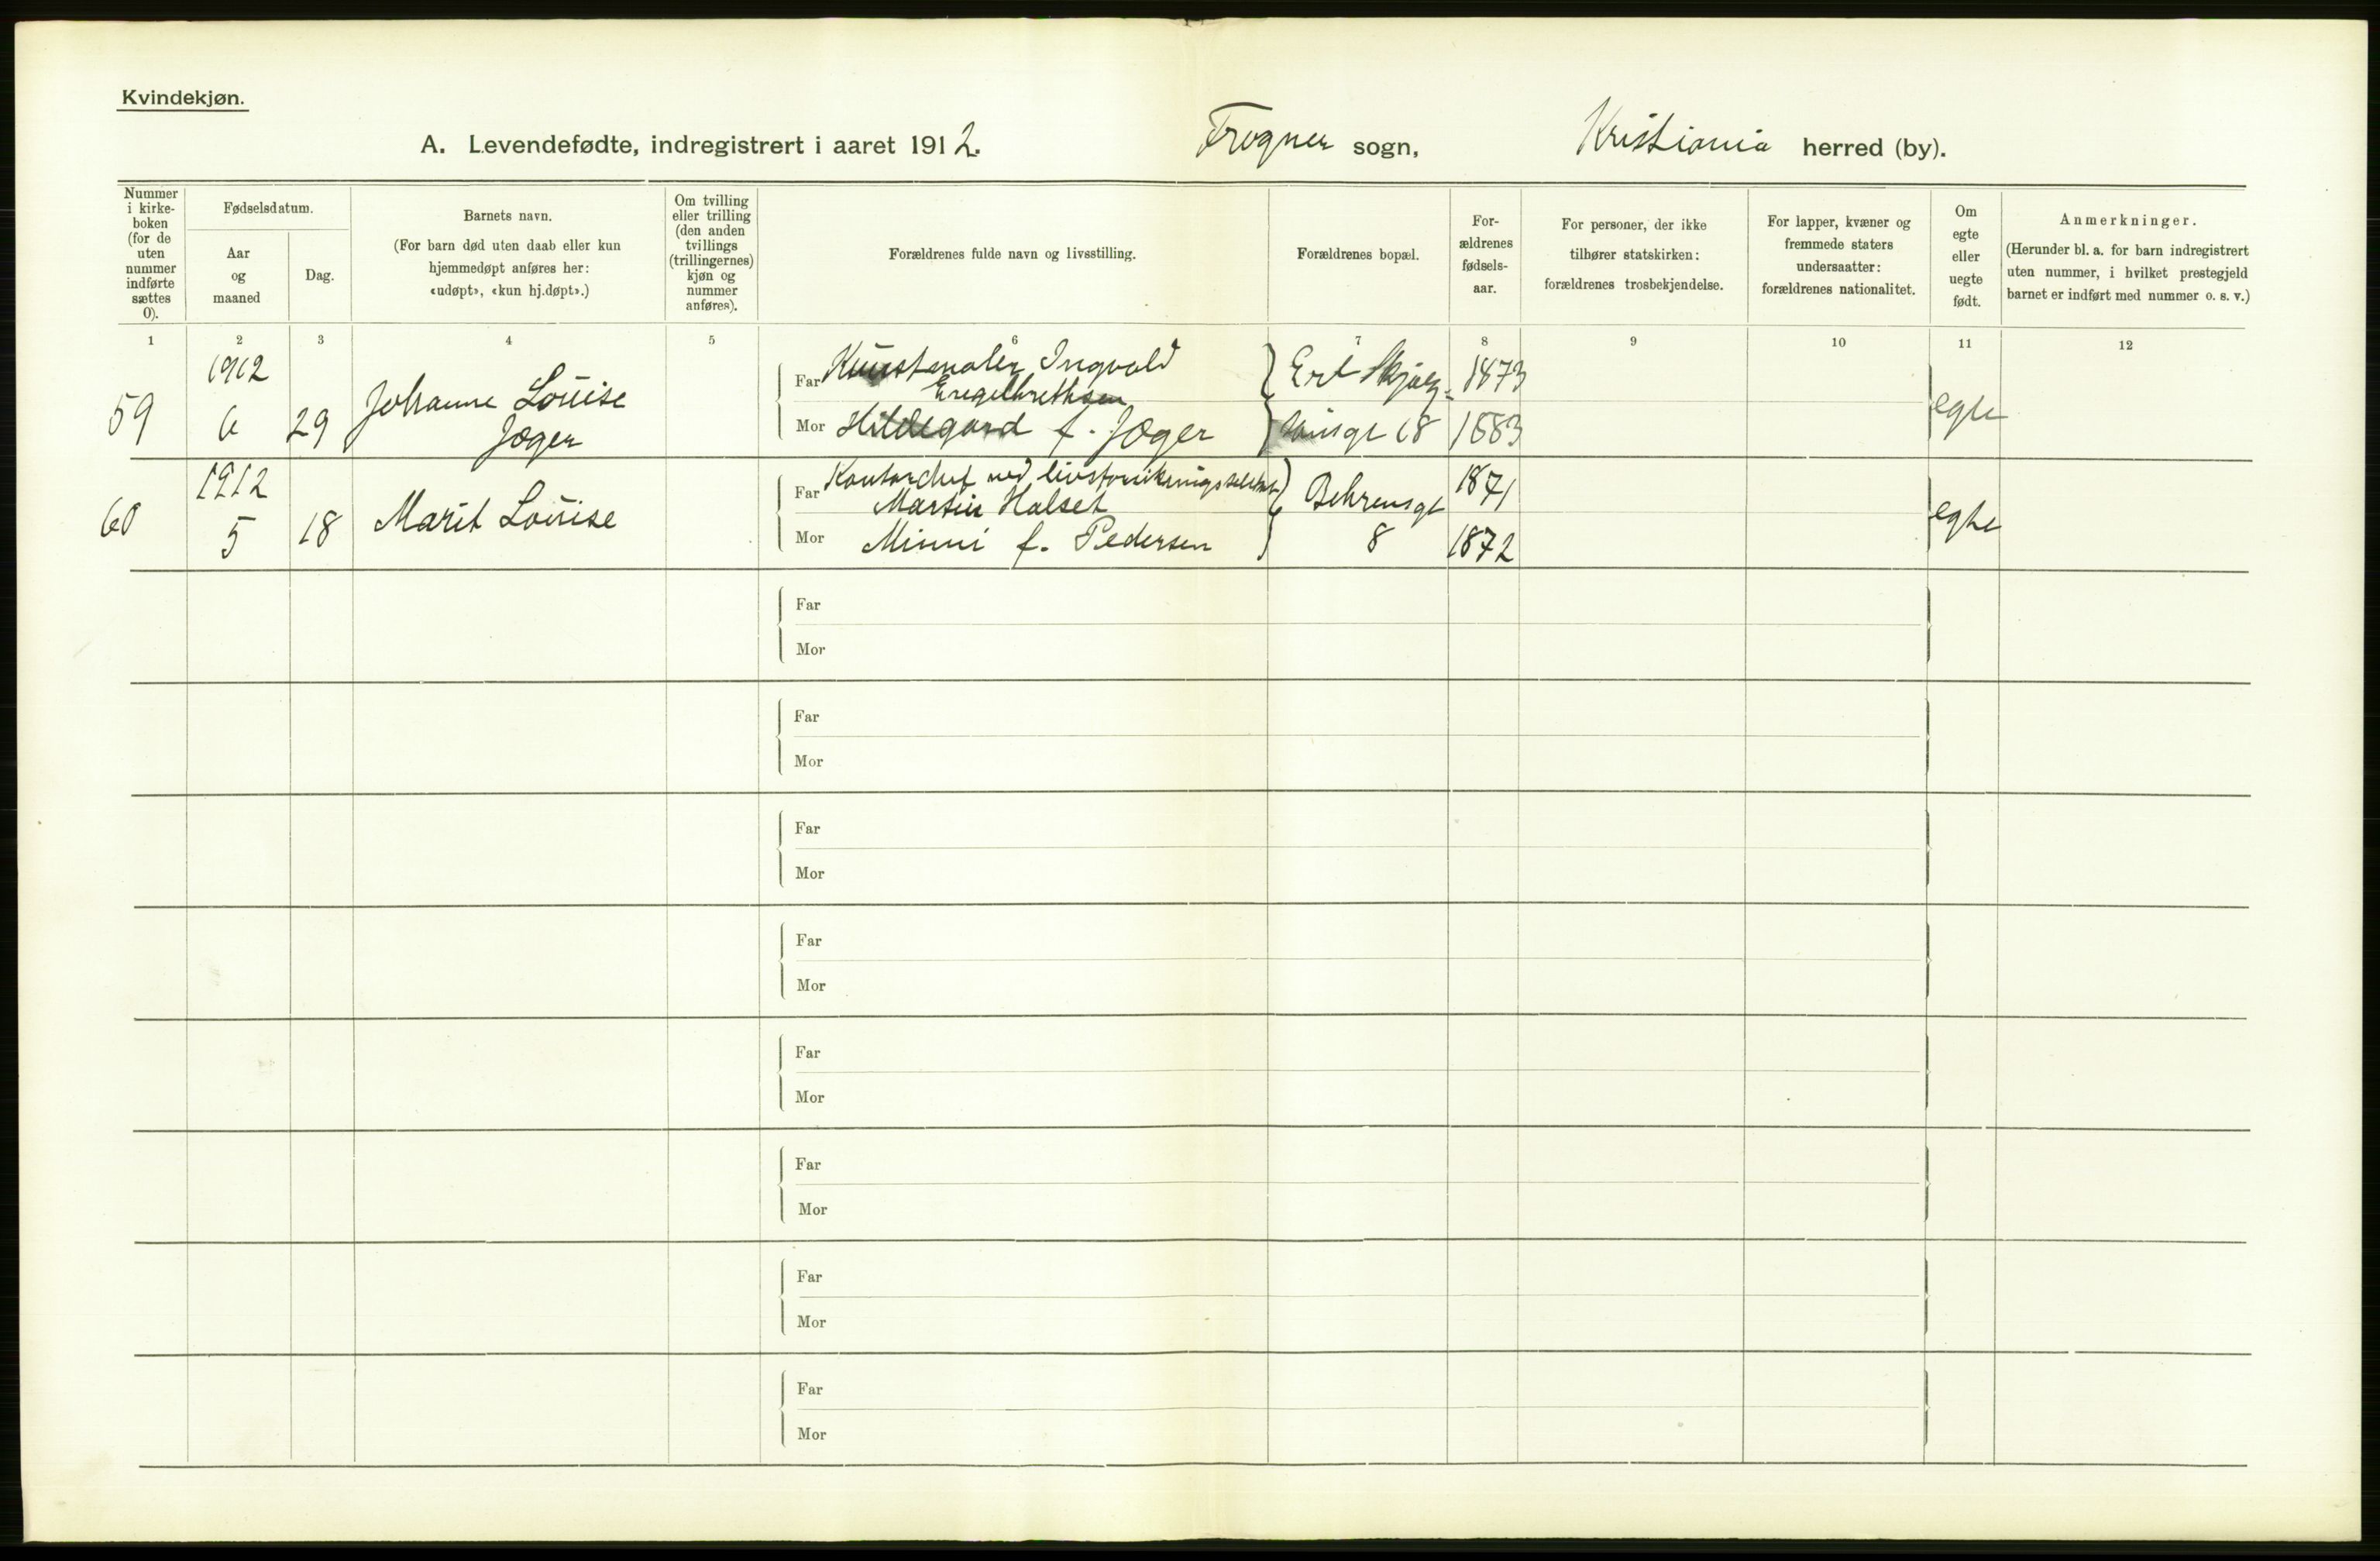 Kvindekjøn.
A. Levendefødte, indregistrert i aaret 1912.
Frogner sogn,
Kristiania herred (by).
Nummer
i kirke-
boken
(for de
uten
nummer
indførte
sættes
0).
Fødselsdatum.
Aar
og
maaned
Dag.
Barnets navn.
(For barn død uten daab eller kun
hjemmedøpt anføres her:
«udøpt», «kun hj.døpt».)
Om tvilling
eller trilling
(den anden
tvillings
(trillingernes)
kjøn og
nummer
anføres).
Forældrenes fulde navn og livsstilling.
Forældrenes bopæl.
For-
ældrenes
fødsels-
aar.
For personer, der ikke
tilhører statskirken:
forældrenes trosbekjendelse.
For lapper, kvæner og
fremmede staters
undersaatter:
forældrenes nationalitet.
Om
egte
eller
uegte
født.
Anmerkninger.
(Herunder bl. a. for barn indregistrert
uten nummer, i hvilket prestegjeld
barnet er indført med nummer o. s. v.)
1 2 3 4 5 6 7 8 9 10 11 12
59
1912
6
29
Johanne Louise
Jæger
Far Kunstmaler Ingvald
Engelbrethsen
Mor Hildegard f. Jæger
Ert Skjær-
gt 18
1873
1883
egte
60
1912
5
18
Marit Louise
Far Kontorchef ved livsforsikringsselskab
Martin Halset
Mor Minni f. Pedersen
Behrensgt
8
1871
1872
egte
Far
Mor
Far
Mor
Far
Mor
Far
Mor
Far
Mor
Far
Mor
Far
Mor
Far
Mor